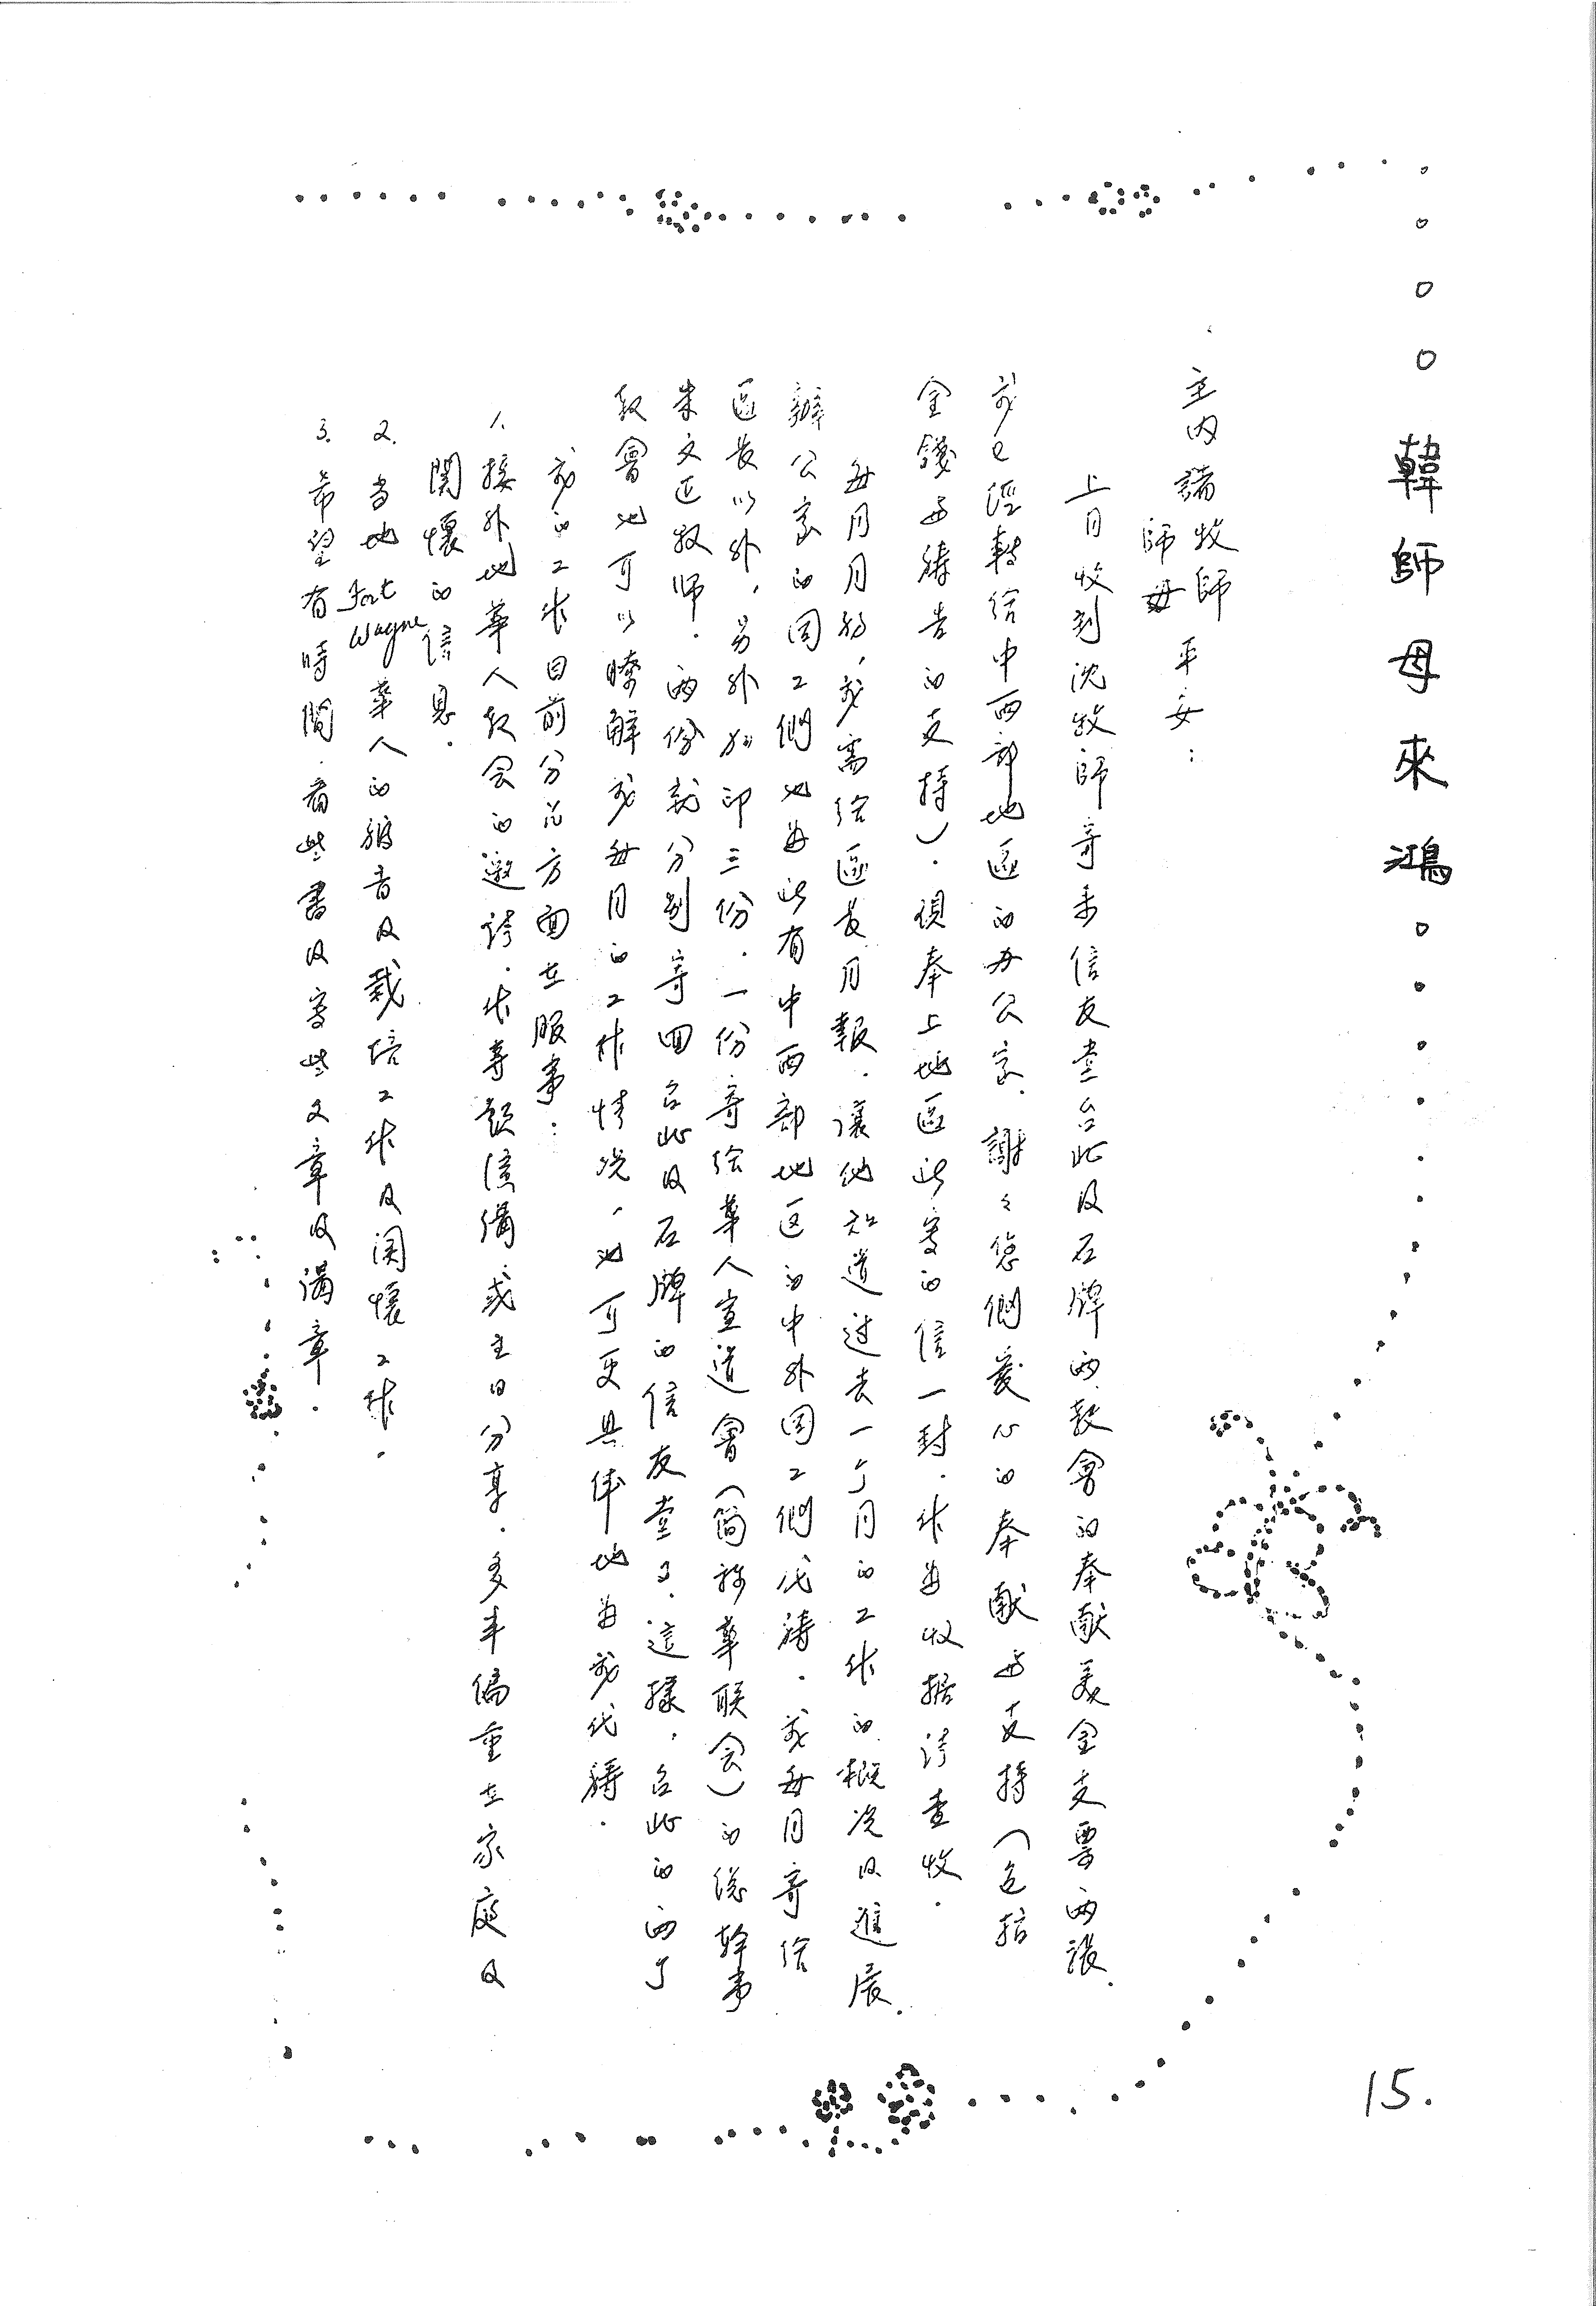 韓師母來鴻
主內諸牧師
師母 平安：
上月收到沈牧師寄來信友堂台北及石牌两教會的奉献美金支票两張.
我已經轉给中西部地區的办公室.謝々您們愛心的奉献与支持(包括
金錢与禱告的支持).現奉上地區所寄的信一封.作為收据请查收.
每月月初,我需给區長月報.讓他知道过去一个月的工作的概况及進展.
辦公室的同工們也為所有中西部地区的中外同工們代禱.我每月寄给
區長以外,另外加印三份.一份寄给華人宣道會(简称華联会)的總幹事
朱文正牧师.两份就分别寄回台北及石牌的信友堂了.這樣,台北的两个
教會也可以瞭解我每月的工作情况,也可更具体地為我代禱.
我的工作目前分为方面在服事：
1.接外地華人教会的邀请.作專題演講,或主日分享.多半偏重在家庭及
関懷的信息.
2.当地 Fort Wayne 華人的福音及栽培工作及関懷工作.
3.希望有時間.看些書及寫些文章及講章.
15.